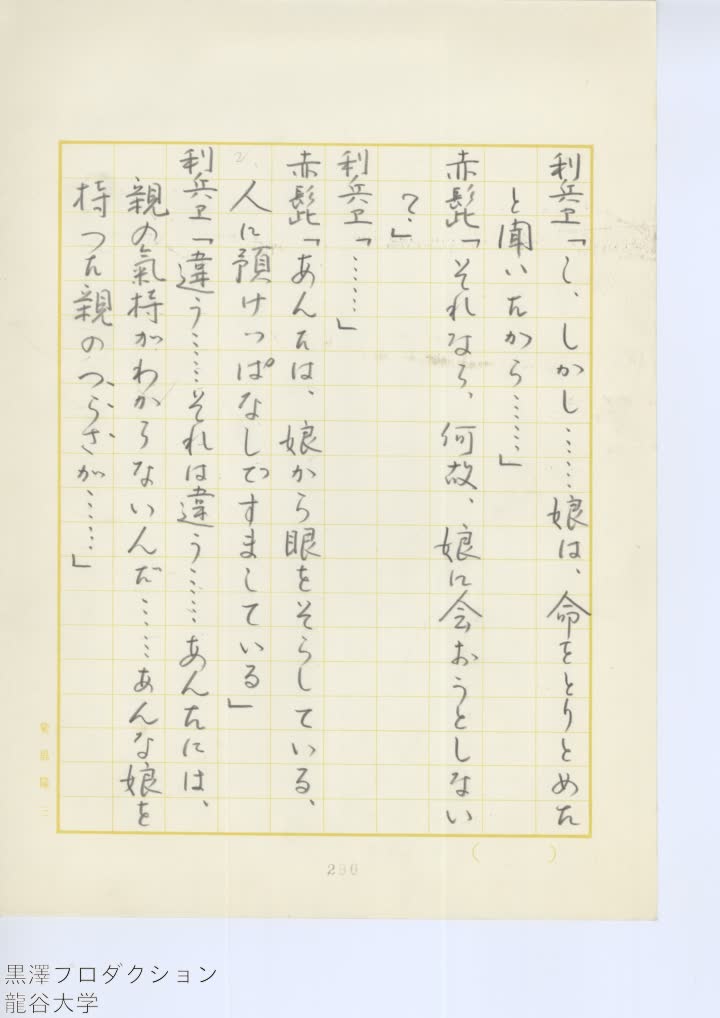 利兵ヱ「し、しかし……娘は、命をとりとめた
と聞いたから……」
赤髭「それなら、何故、娘に会おうとしない
?」
利兵ヱ「……」
赤髭「あんたは、娘から眼をそらしている、
人に預けっぱなしですましている」
利兵ヱ「違う……それは違う……あんたには、
親の氣持がわからないんだ……あんな娘を
持つた親のつらさが……」
290
黒澤プロダクション
龍谷大学